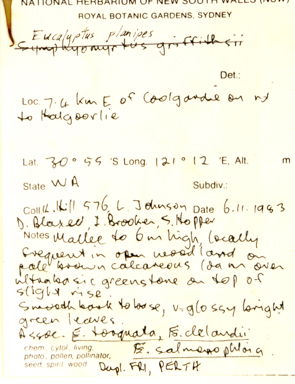 NATIONAL HERBARIUM OF NEW SOUTH WALES (NSW)
ROYAL BOTANIC GARDENS, SYDNEY
Eucalyptus planipes
Symphyomyrtus griffithsii
Det.:
Loc. 7.4 km E of Coolgardie on rd
to Kalgoorlie
Lat. 30° 55 'S Long. 121° 12 'E, Alt. m
State WA Subdiv.:
Coll. K. Hill 576, L. Johnson Date 6.11.1983
D. Blaxell I. Brooker, S. Hopper
Notes Mallee to 6m high, locally
frequent in open woodland on
pale brown calcareous loam over
ultrabasic greenstone on top of
slight rise.
Smooth bark to base, v. glossy bright
green leaves.
Assoc. E. torquata, E. clelandii
E. salmonophloia
chem., cytol., living,
photo, pollen, pollinator,
seed, spirit, wood Dupl. FRI, PERTH